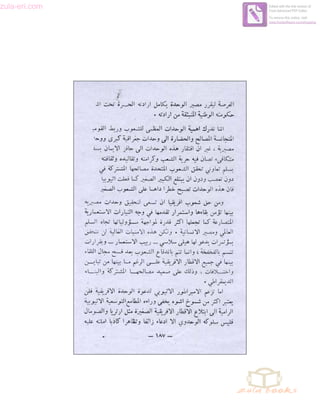 zula-eri.com
Edited with the trial version of
Foxit Advanced PDF Editor
To remove this notice, visit:
www.foxitsoftware.com/shopping
الفرصة ليقرر مصير الوحدة بكامل ارادته الحرة تحت
حكومته الوطنية المنبثقة من ارادته ٠
اننا ندرك اهمية الوحدات العظمى للشعوب وربط القوى
المتجانسة المصالح والحضارة الى وحدات جغرافية كبرى
مصيرية ، غير ان افتقار هذه الوحدات الى حافز الايمان
متكافىء تصان فيه حرية الشعب وكرامته وتقاليده وثقافته
سلم تعاوني تحقق الشعوب المتحدة مصالحها المشتركة في
دون تعصب ودون ان يبتلع الكبير الصغير كما فعلت اثيوبيا
فان هذه الوحدات تصبح خطرا داهما على الشعوب الصغير
ومن حق شعوب افريقيا ان تسعى لتحقيق وحدات مصيرية
بينها تؤمن بقاءها واستمرار تقدمها في وجه التيارات الاستعمارية
المتصارعة كما تجعلها اكثر قدرة لمواجهة مسؤولياتها تجاه السلم
العالمي ومصير الانسانية ٠ ولكن هذه الامنيات الغالية لن تتحقق
بمؤتمرات يدعو لها هيلي سلاسي ـ ربيب الاستعمار ـ وبقرارات
تتسم ، وانما تتم باندفاع الشعوب بعد فسح مجال اللقاء
بينها في جميع الاقطار الافريقية على الرغم ما بينها من تباين
واختلافات ، وذلك على صعيد مصالحها المشتركة والبناء
الديمقراطي ٠
اما تزعم الامبراطور الاثيوبي لدعوة الوحدة الافريقية فلن
يعتبر اكثر من شموخ اشوه يخفي وراءه المطامع التوسعية الاثيوبية
الرامية الى ابتلاع الاقطار الافريقية الصغيرة مثل ارتريا والصومال
فليس سلوكه الوحدوي الا ادعاء زائفا وتظاهرا كاذبا املته عليه
— ١٨٧ —
asia books